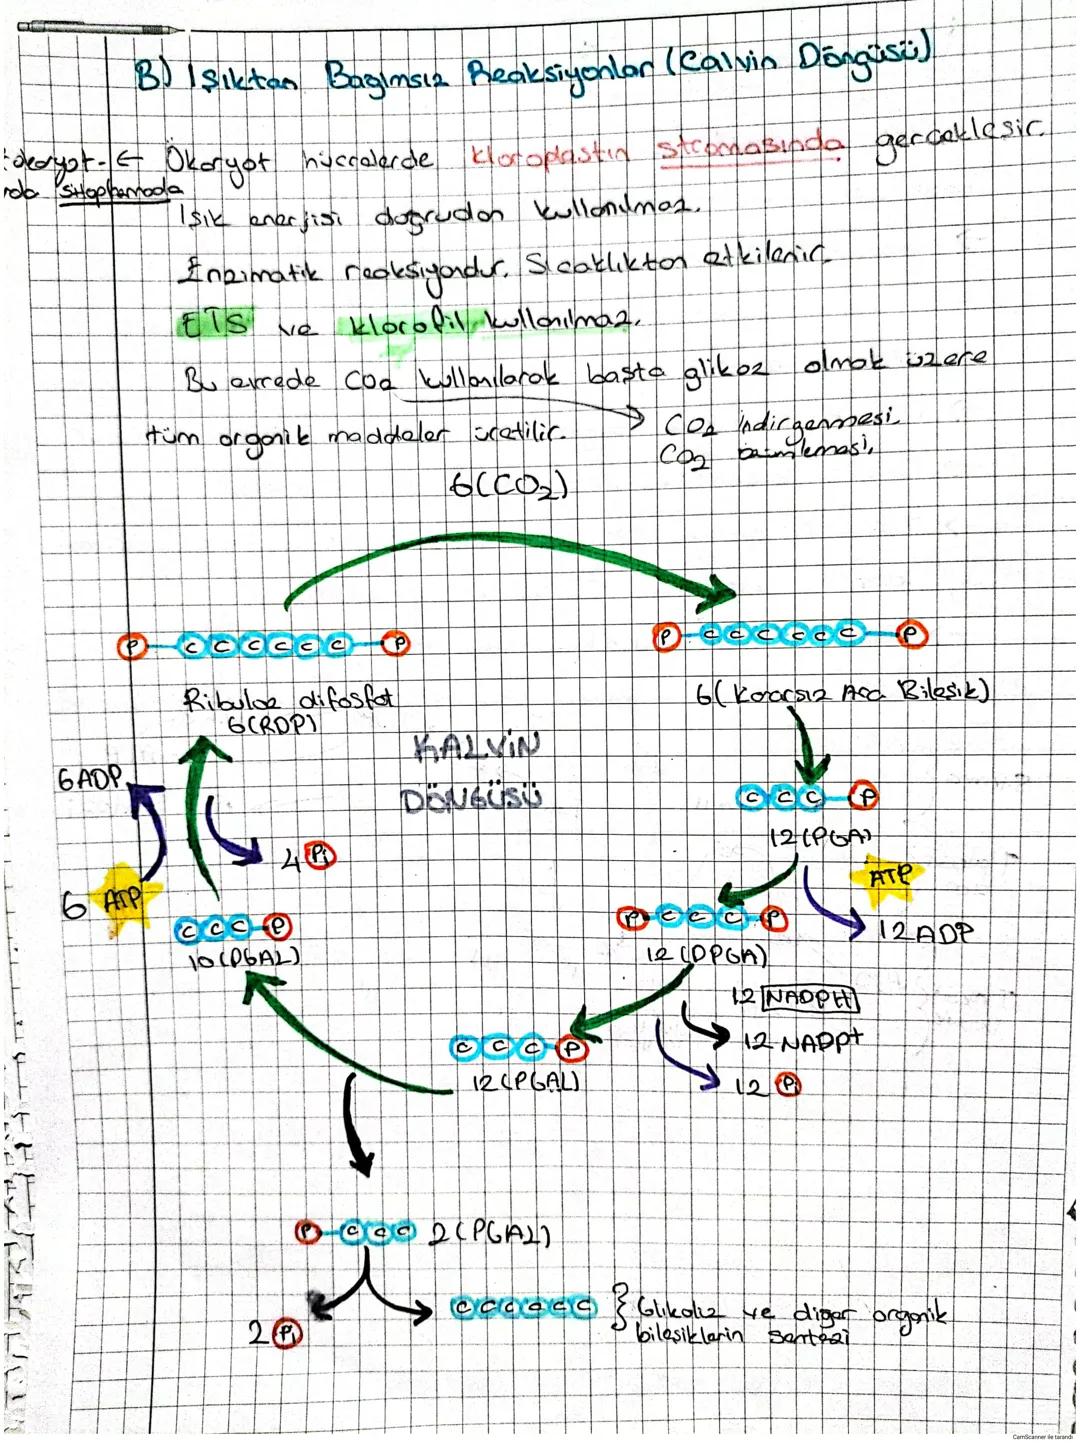 B) Işıktan Bağımsız Reaksiyonlar (Calvin Döngüsü)
Ökaryot hücrelerde kloroplastın stromasında gerçekleşir.
Sitoplazmada
Işık enerjisi doğrudan kullanılmaz.
Enzimatik reaksiyondur. Sıcaklıktan etkilenir.
ETS ve klorofil kullanılmaz.
Bu evrede CO2 kullanılarak başta glikoz olmak üzere
tüm organik maddeler üretilir.
CO2 indirgenmesi.
CO2
6(CO2)
P C C C C C C P
P C C C C C C P
Ribuloz difosfat
6(RDP)
6(Kararsız Ara Bileşik)
KALVİN
DÖNGÜSÜ
6ADP
C C C P
12(PGA)
4 Pi
ATP
6 ATP
C C C P
10(PGAL)
P C C C P
12ADP
12(DPGA)
12 NADPH
12 NADP+
C C C P
12(PGAL)
12 Pi
P C C C 2(PGAL)
C C C C C C } Glikoz ve diğer organik
bileşiklerin sentezi
2 Pi
CamScanner ile tarandı